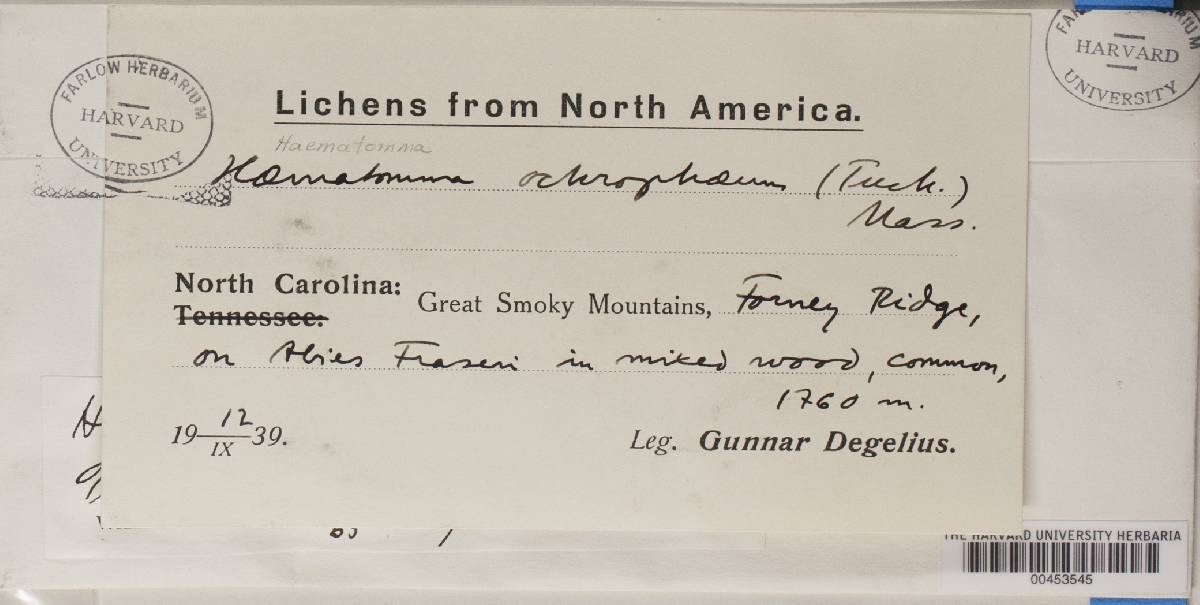 FARLOW HERBARIUM
HARVARD
UNIVERSITY
HARVARD
UNIVERSITY
Lichens from North America.
Haematomma
Hæmatomma ochrophæum (Tuck.)
Mass.
North Carolina:
Tennessee:
Great Smoky Mountains, Forney Ridge,
on Abies Fraseri in mixed wood, common,
1760 m.
19 12/IX 39.
Leg. Gunnar Degelius.
THE HARVARD UNIVERSITY HERBARIA
00453545